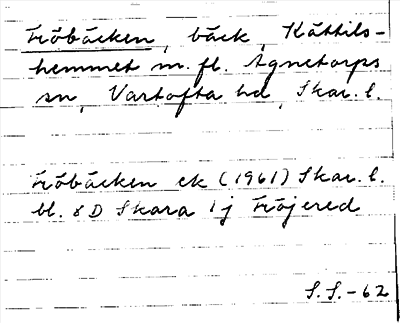 Fröbäcken, bäck, Kättils-
hemmet m. fl. Agnetorps
sn, Vartofta hd, Skar. l.
Fröbäcken ek (1961) Skar. l.
bl. 8 D Skara 1 j Fröjered
S. S. -62